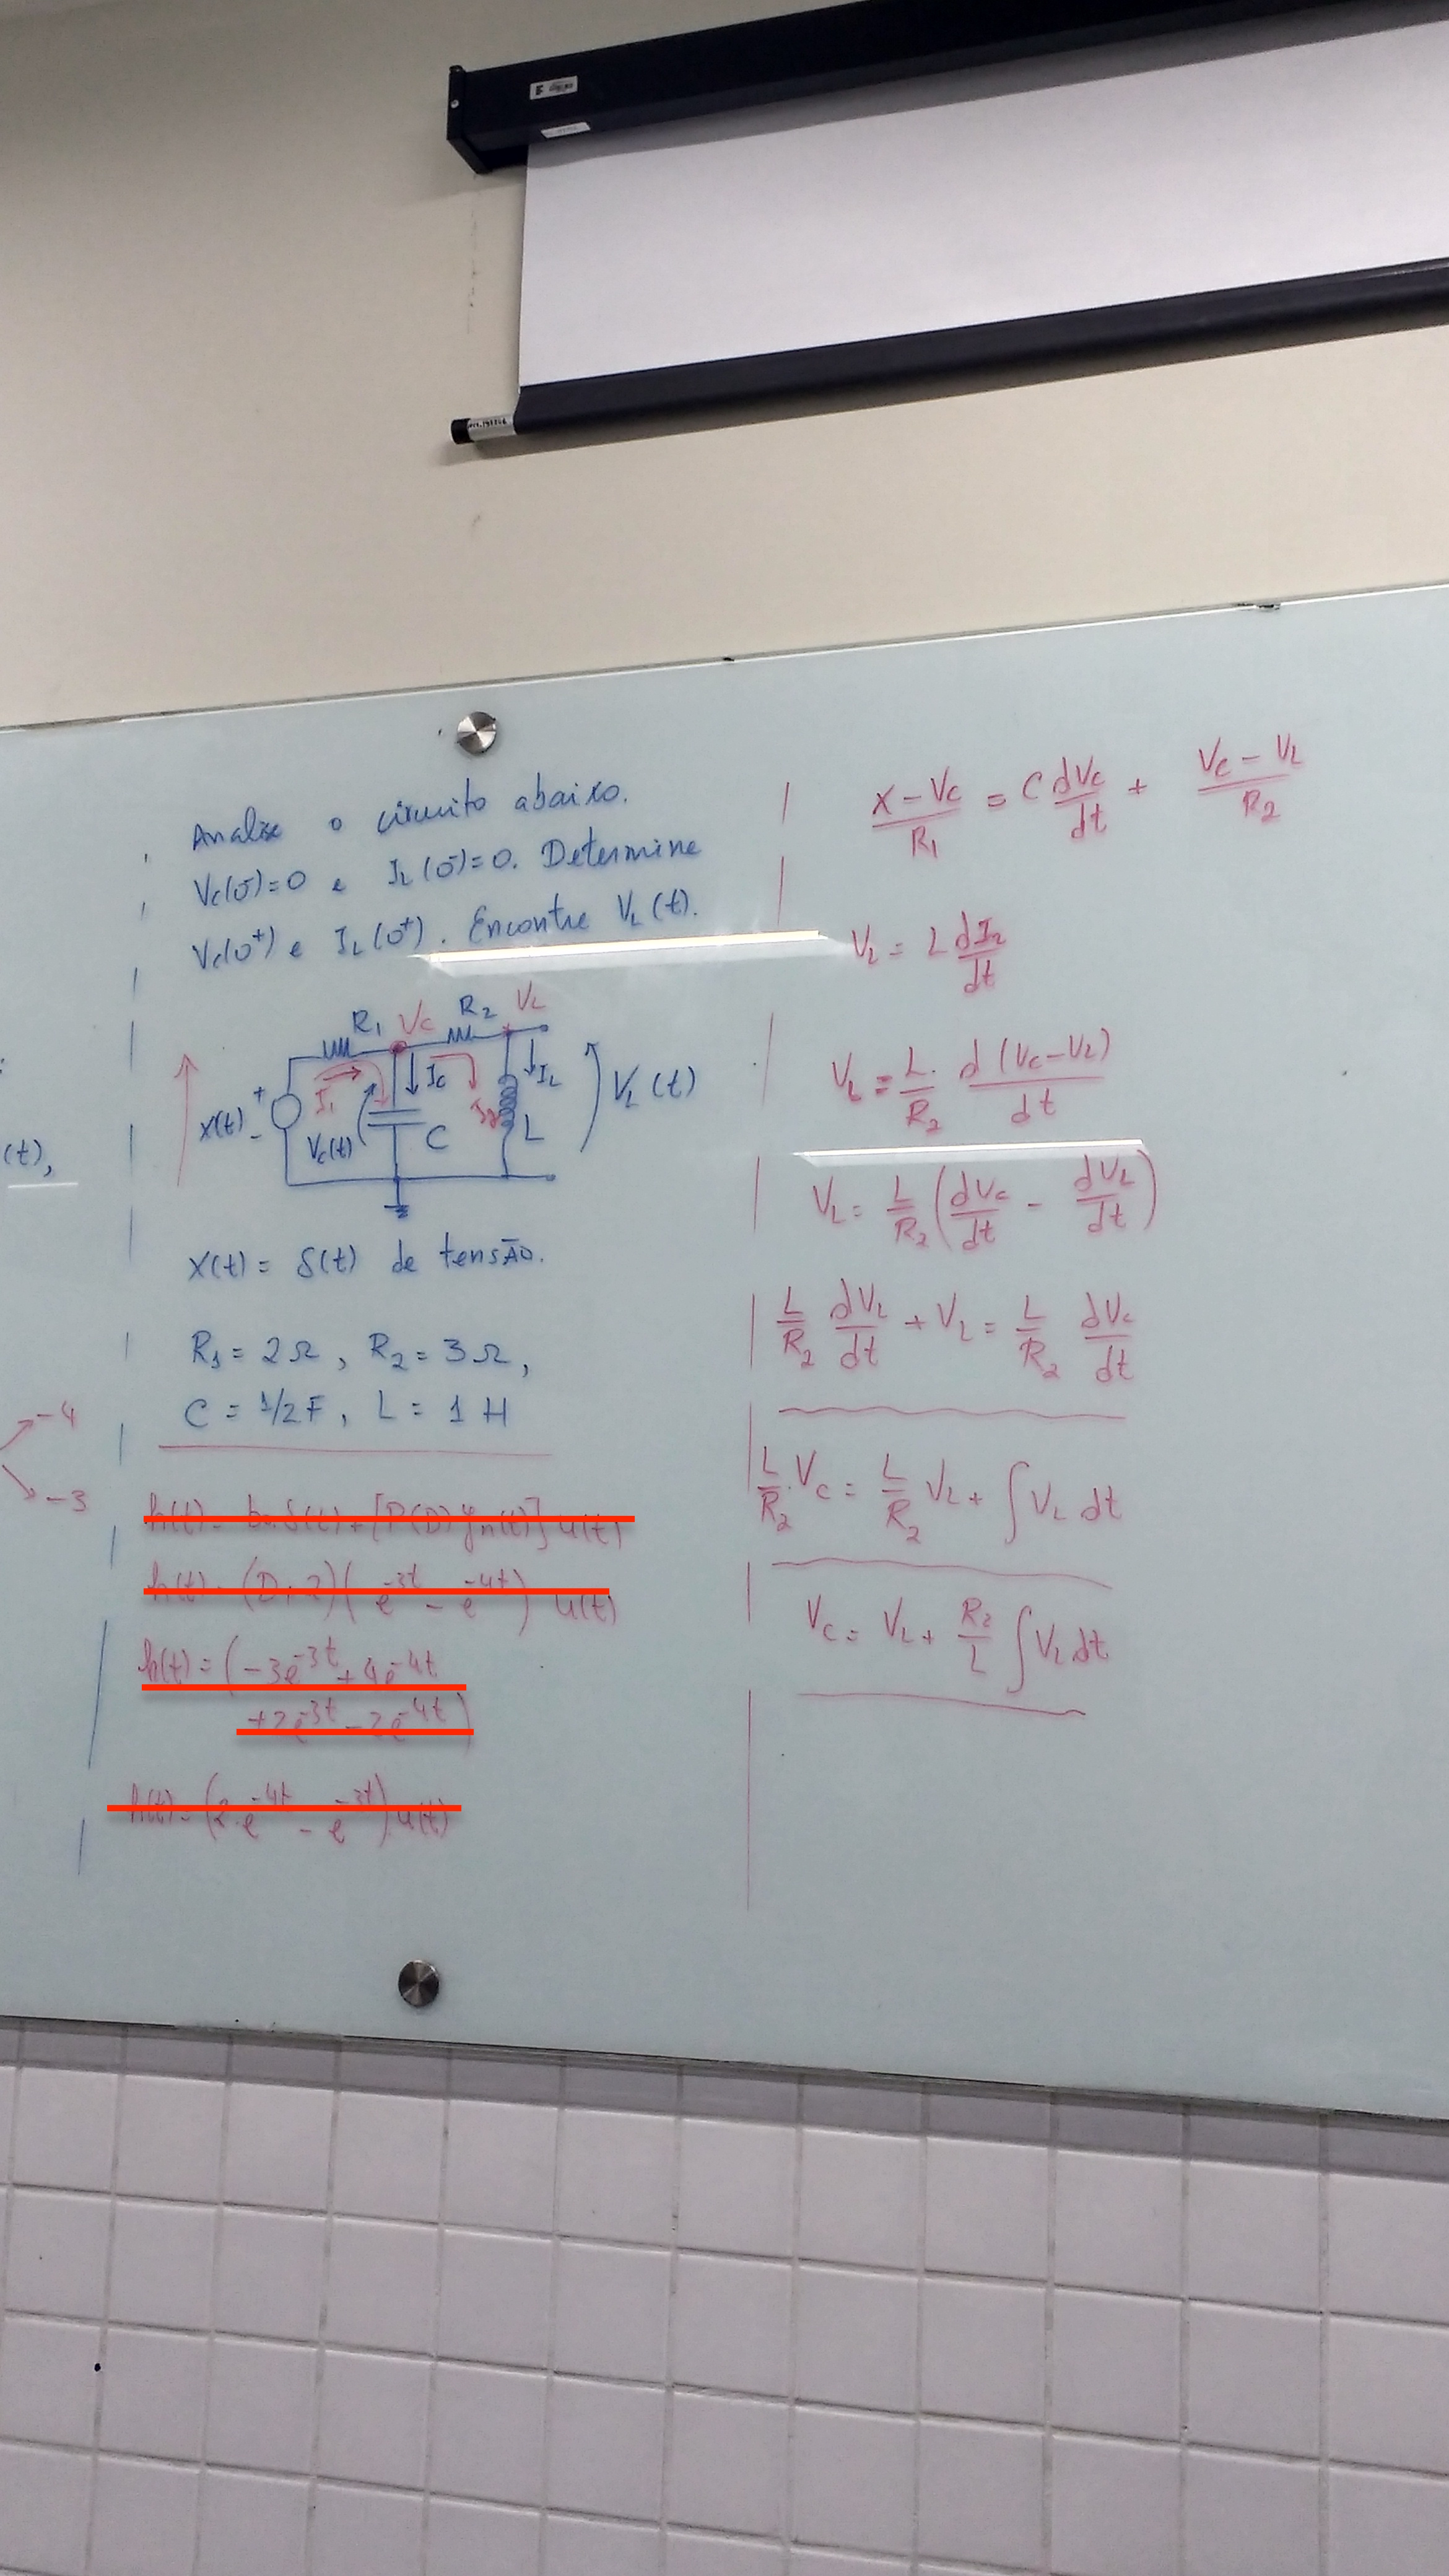 Analise o circuito abaixo.
Vc(0⁻)=0 e IL(0⁻)=0. Determine
Vc(0⁺) e IL(0⁺). Encontre VL(t).
R1 Vc R2 VL
x(t) + - I1 Vc(t) Ic C I2 L IL VL(t)
x(t) = δ(t) de tensão.
R1 = 2Ω, R2 = 3Ω,
C = 1/2F, L = 1H
(t),
-4
-3
h(t) = (D+2)(e^-3t - e^-4t) u(t)
h(t) = (-3e^-3t + 4e^-4t
+2e^-3t - 2e^-4t)
h(t) = (2·e^-4t - e^-3t) u(t)
(x - Vc)/R1 = C dVc/dt + (Vc - VL)/R2
VL = L dI2/dt
VL = L/R2 · d(Vc-VL)/dt
VL = L/R2 (dVc/dt - dVL/dt)
L/R2 dVL/dt + VL = L/R2 dVc/dt
L/R2 · Vc = L/R2 VL + ∫VL dt
Vc = VL + R2/L ∫VL dt